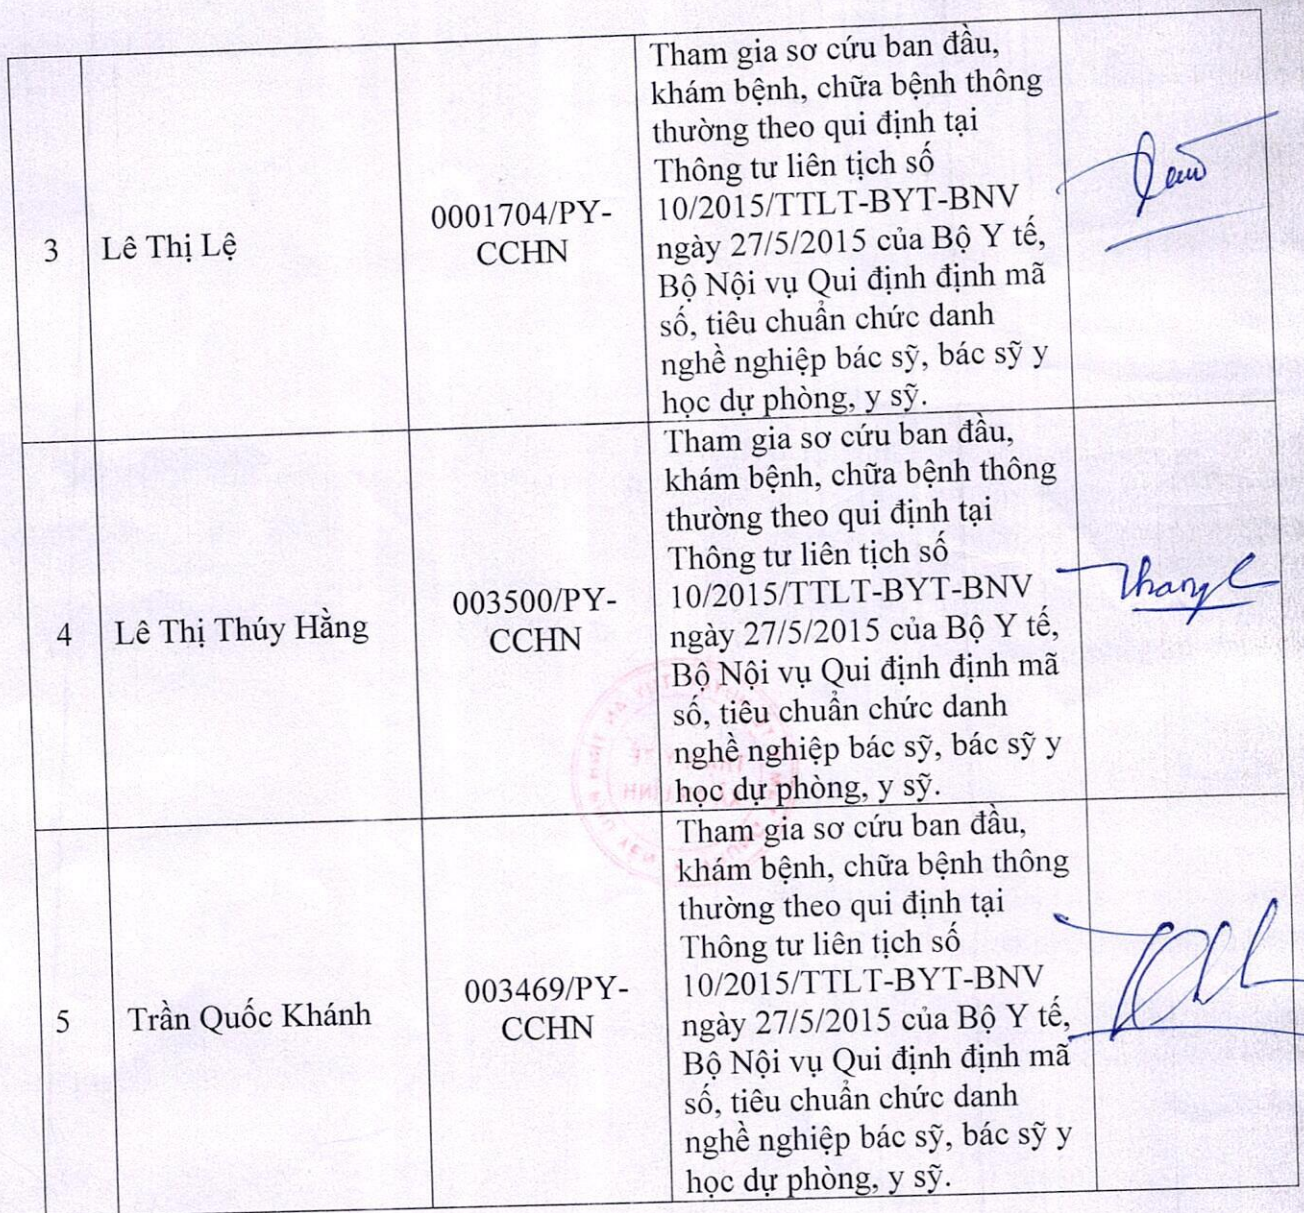 3
Lê Thị Lệ
0001704/PY-
CCHN
Tham gia sơ cứu ban đầu,
khám bệnh, chữa bệnh thông
thường theo qui định tại
Thông tư liên tịch số
10/2015/TTLT-BYT-BNV
ngày 27/5/2015 của Bộ Y tế,
Bộ Nội vụ Qui định định mã
số, tiêu chuẩn chức danh
nghề nghiệp bác sỹ, bác sỹ y
học dự phòng, y sỹ.
4
Lê Thị Thúy Hằng
003500/PY-
CCHN
Tham gia sơ cứu ban đầu,
khám bệnh, chữa bệnh thông
thường theo qui định tại
Thông tư liên tịch số
10/2015/TTLT-BYT-BNV
ngày 27/5/2015 của Bộ Y tế,
Bộ Nội vụ Qui định định mã
số, tiêu chuẩn chức danh
nghề nghiệp bác sỹ, bác sỹ y
học dự phòng, y sỹ.
5
Trần Quốc Khánh
003469/PY-
CCHN
Tham gia sơ cứu ban đầu,
khám bệnh, chữa bệnh thông
thường theo qui định tại
Thông tư liên tịch số
10/2015/TTLT-BYT-BNV
ngày 27/5/2015 của Bộ Y tế,
Bộ Nội vụ Qui định định mã
số, tiêu chuẩn chức danh
nghề nghiệp bác sỹ, bác sỹ y
học dự phòng, y sỹ.